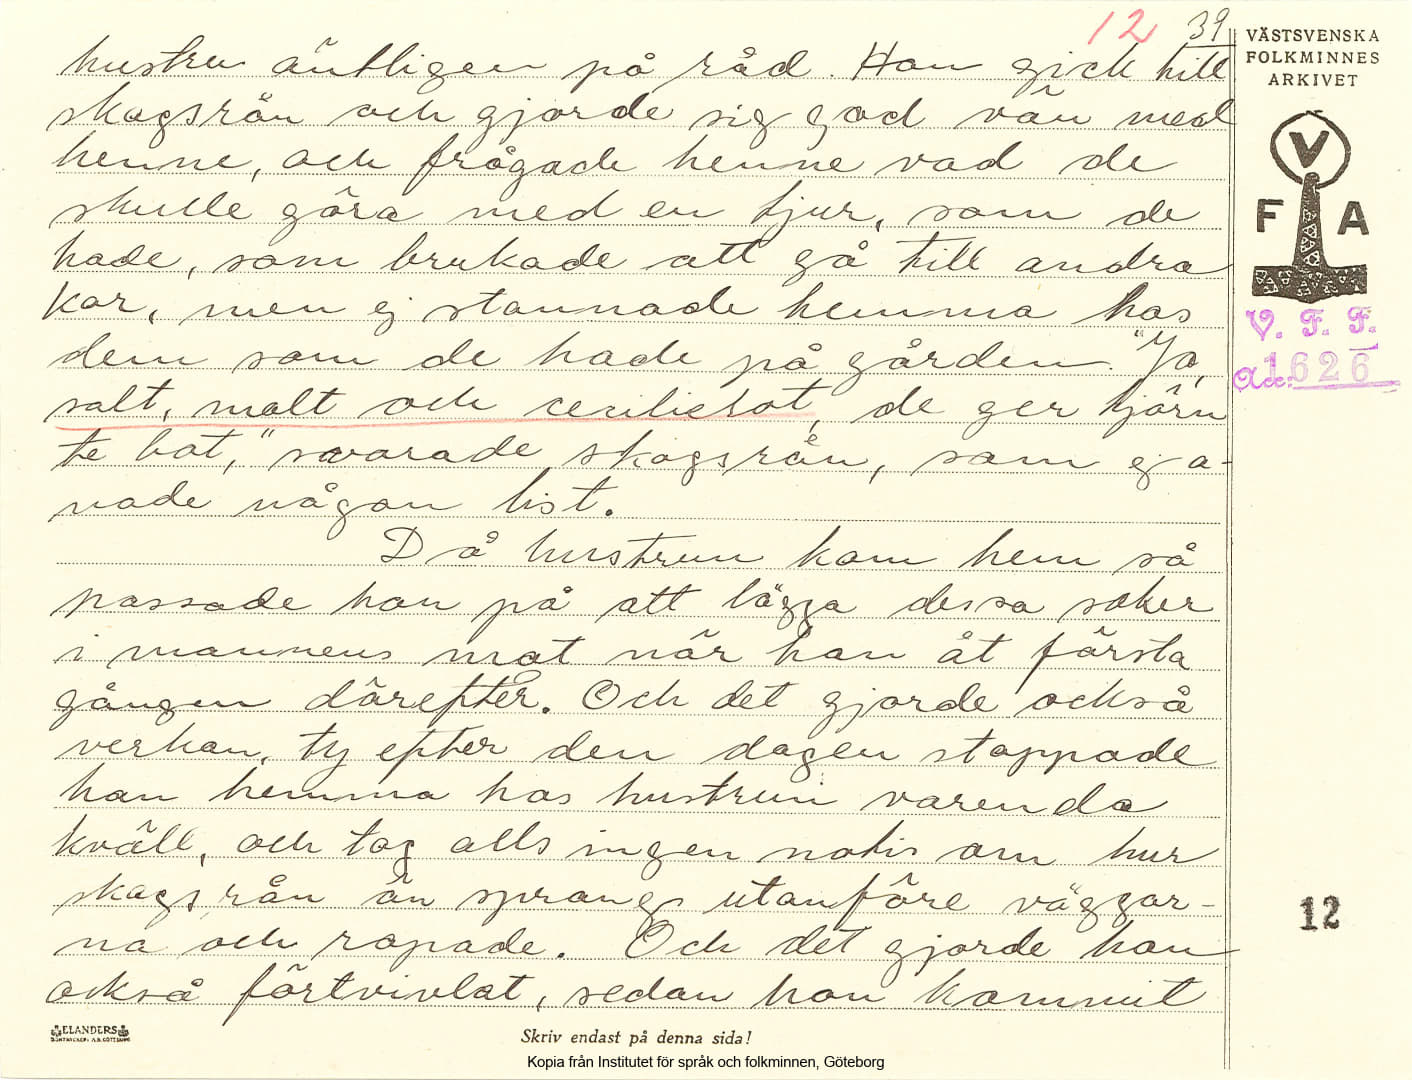 12 39
hustru äntligen på råd. Hon gick till
skogsrån och gjorde sig god vän med
henne, och frågade henne vad de
skulle göra med en tjur, som de
hade, som brukade att gå till andra
kor, men ej stannade hemma hos
dem som de hade på gården. "Jo,
salt, malt och ceciliesot, de ger tjörn
te bot," svarade skogsrån, som ej a-
nade någon list.
Då hustrun kom hem så
passade hon på att lägga dessa saker
i mannens mat när han åt första
gången därefter. Och det gjorde också
verkan, ty efter den dagen stoppade
han hemma hos hustrun varenda
kväll, och tog alls ingen notis om hur
skogsrån än sprang utanföre väggar-
na och ropade. Och det gjorde hon
också förtvivlat, sedan hon kommit
VÄSTSVENSKA
FOLKMINNES
ARKIVET
V
F A
V. F. F.
Acc: 1626
12
ELANDERS
Skriv endast på denna sida!
Kopia från Institutet för språk och folkminnen, Göteborg